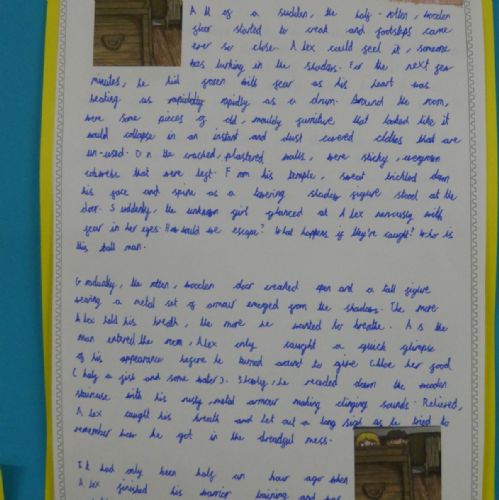 All of a sudden, the half-rotten, wooden
floor started to creak and footsteps came
ever so close. Alex could feel it, someone
was lurking in the shadows. For the next few
minutes, he hid frozen with fear as his heart was
beating as rapidly as a drum. Around the room,
were some pieces of old, mouldy furniture that looked like it
would collapse in an instant and dust covered clothes that are
un-used. On the cracked, plastered walls, were sticky, overgrown
cobwebs that were left. From his temple, sweat trickled down
his face and spine as a towering shadow figure stood at the
door. Suddenly, the unknown girl glanced at Alex nervously with
fear in her eyes. How could we escape? What happens if they're caught? Who is
this tall man.
Gradually, the rotten, wooden door creaked open and a tall figure
wearing a metal set of armour emerged from the shadows. The more
Alex held his breath, the more he wanted to breathe. As the
man entered the room, Alex only caught a quick glimpse
of his appearance before he turned around to give Chloe her food
(half a fish and some water). Slowly, he receded down the wooden
staircase with his rusty metal armour making clinging sounds. Relieved,
Alex caught his breath and let out a long sigh as he tried to
remember how he got in the dreadful mess.
It had only been half an hour ago when
Alex finished his warrior training and had